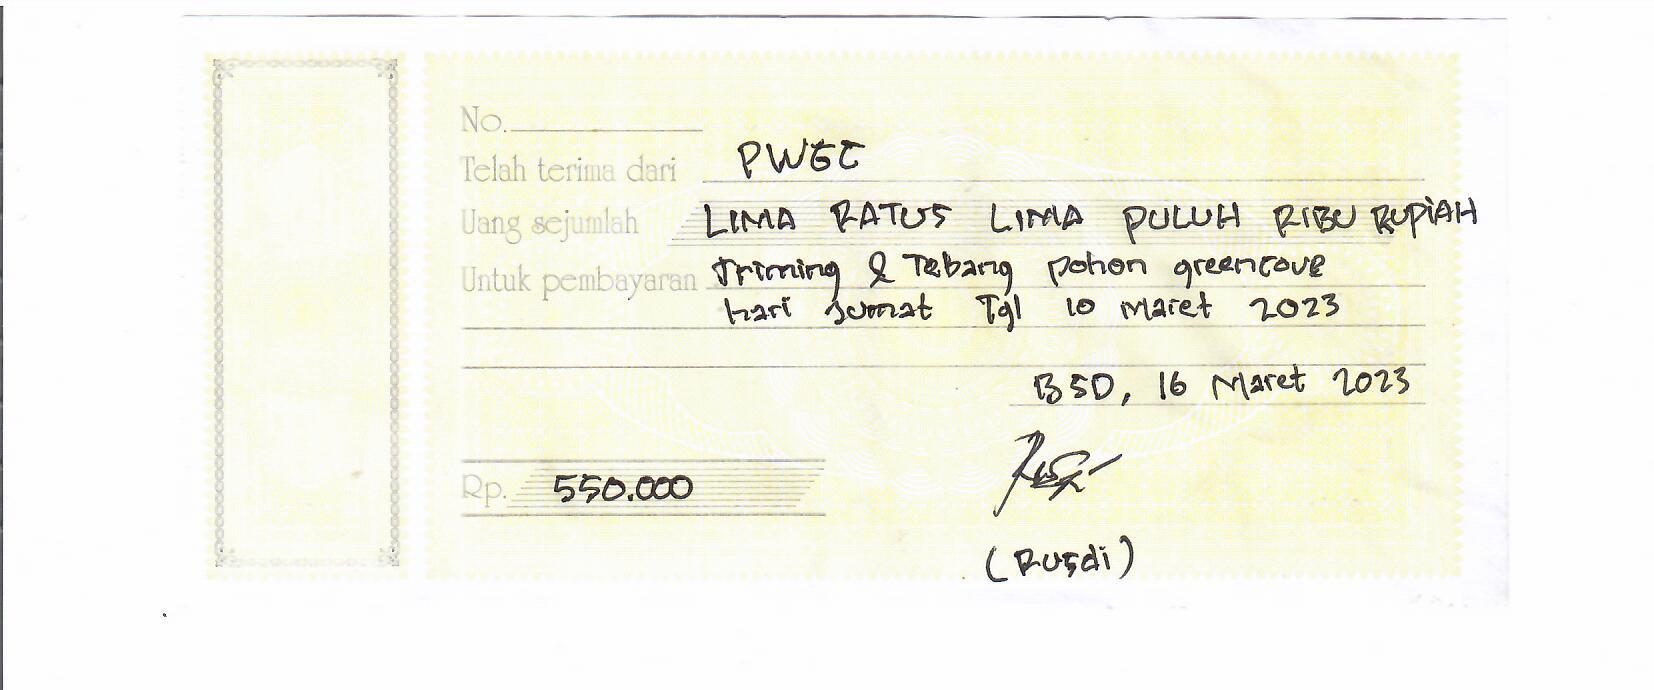 No.
Telah terima dari PWGC
Uang sejumlah LIMA RATUS LIMA PULUH RIBU RUPiAH
Untuk pembayaran Triming & Tebang pohon greencove
hari Jumat Tgl 10 Maret 2023
BSD, 16 Maret 2023
Rp. 550.000
(Rusdi)